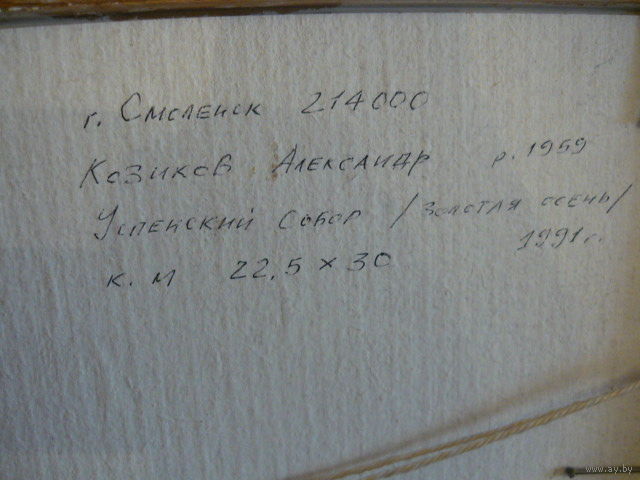 г. Смоленск 214000
Козиков Александр р. 1959
Успенский собор /золотая осень/
1991г.
к. м 22,5 × 30
www.ay.by